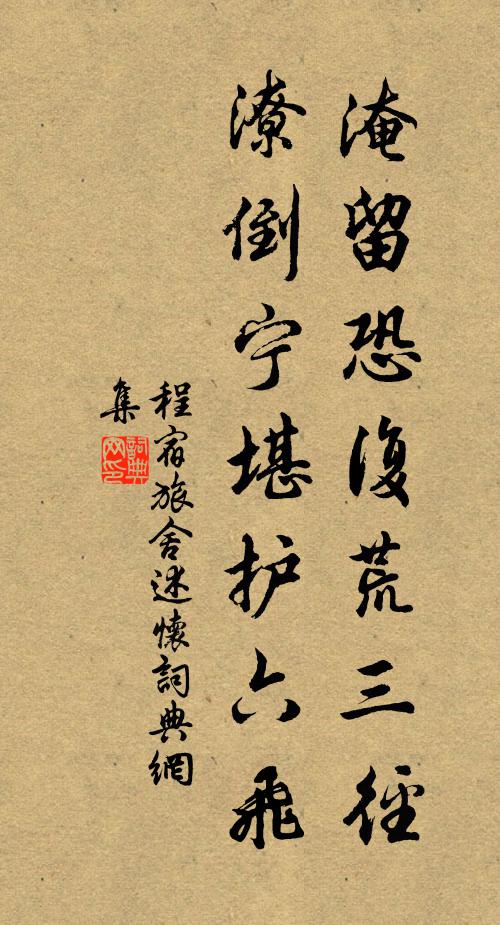 淹留恐復荒三徑
潦倒宁堪护六飛
程宿旅舍述懷詞典網
集
詞典网印